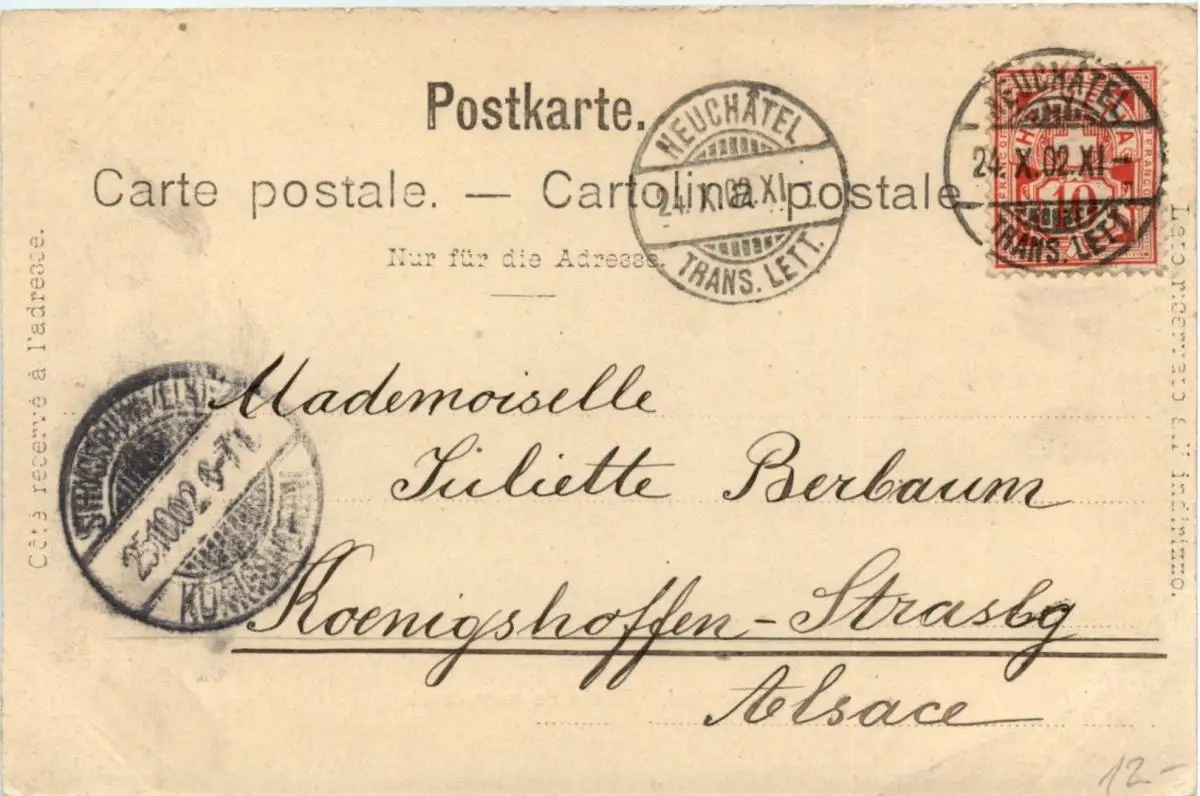 Postkarte.
Carte postale. — Cartolina postale
Nur für die Adresse.
Côté reservé à l'adresse.
Lato riservato all'indirizzo.
NEUCHÂTEL
24. X. 02. XI -
TRANS. LETT.
NEUCHÂTEL
24. X. 02. XI -
TRANS. LETT.
10
STRASSBURG (ELS)
25.10.02. 6-7
Mademoiselle
Juliette Berbaum
Koenigshoffen - Strasbg
Alsace
12.-